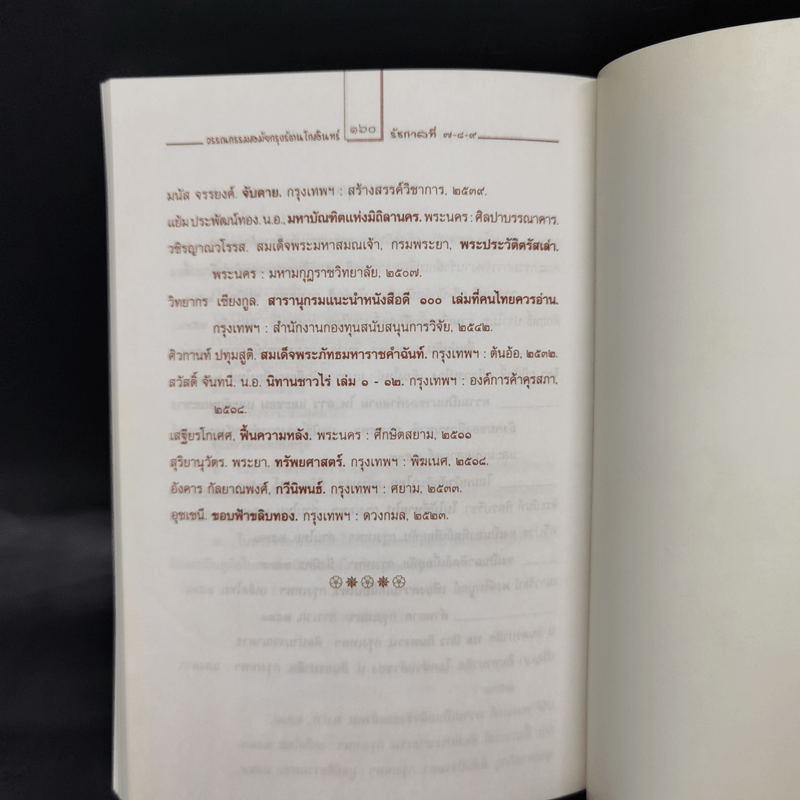 วรรณกรรมสมัยกรุงรัตนโกสินทร์ ๑๖๐ รัชกาลที่ ๗-๘-๙
มนัส จรรยงค์. จับตาย. กรุงเทพฯ : สร้างสรรค์วิชาการ, ๒๕๓๙.
แย้ม ประพัฒน์ทอง. น.อ., มหาบัณฑิตแห่งมิถิลานคร. พระนคร : ศิลปาบรรณาคาร.
วชิรญาณวโรรส. สมเด็จพระมหาสมณเจ้า, กรมพระยา, พระประวัติตรัสเล่า.
พระนคร : มหามกุฎราชวิทยาลัย, ๒๕๐๗.
วิทยากร เชียงกูล. สารานุกรมแนะนำหนังสือดี ๑๐๐ เล่มที่คนไทยควรอ่าน.
กรุงเทพฯ : สำนักงานกองทุนสนับสนุนการวิจัย, ๒๕๔๒.
ศิวกานท์ ปทุมสูติ. สมเด็จพระภัทธมหาราชคำฉันท์. กรุงเทพฯ : ต้นอ้อ, ๒๕๓๒.
สวัสดิ์ จันทนี. น.อ. นิทานชาวไร่ เล่ม ๑ - ๑๒. กรุงเทพฯ : องค์การค้าคุรสภา.
๒๕๑๘.
เสฐียรโกเศศ, ฟื้นความหลัง. พระนคร : ศึกษิตสยาม, ๒๕๐๑
สุริยานุวัตร. พระยา. ทรัพยศาสตร์. กรุงเทพฯ : พิฆเนศ, ๒๕๑๘.
อังคาร กัลยาณพงศ์, กวีนิพนธ์. กรุงเทพฯ : ศยาม, ๒๕๓๓.
อุชเชนี. ขอบฟ้าขลิบทอง. กรุงเทพฯ : ดวงกมล, ๒๕๒๓.